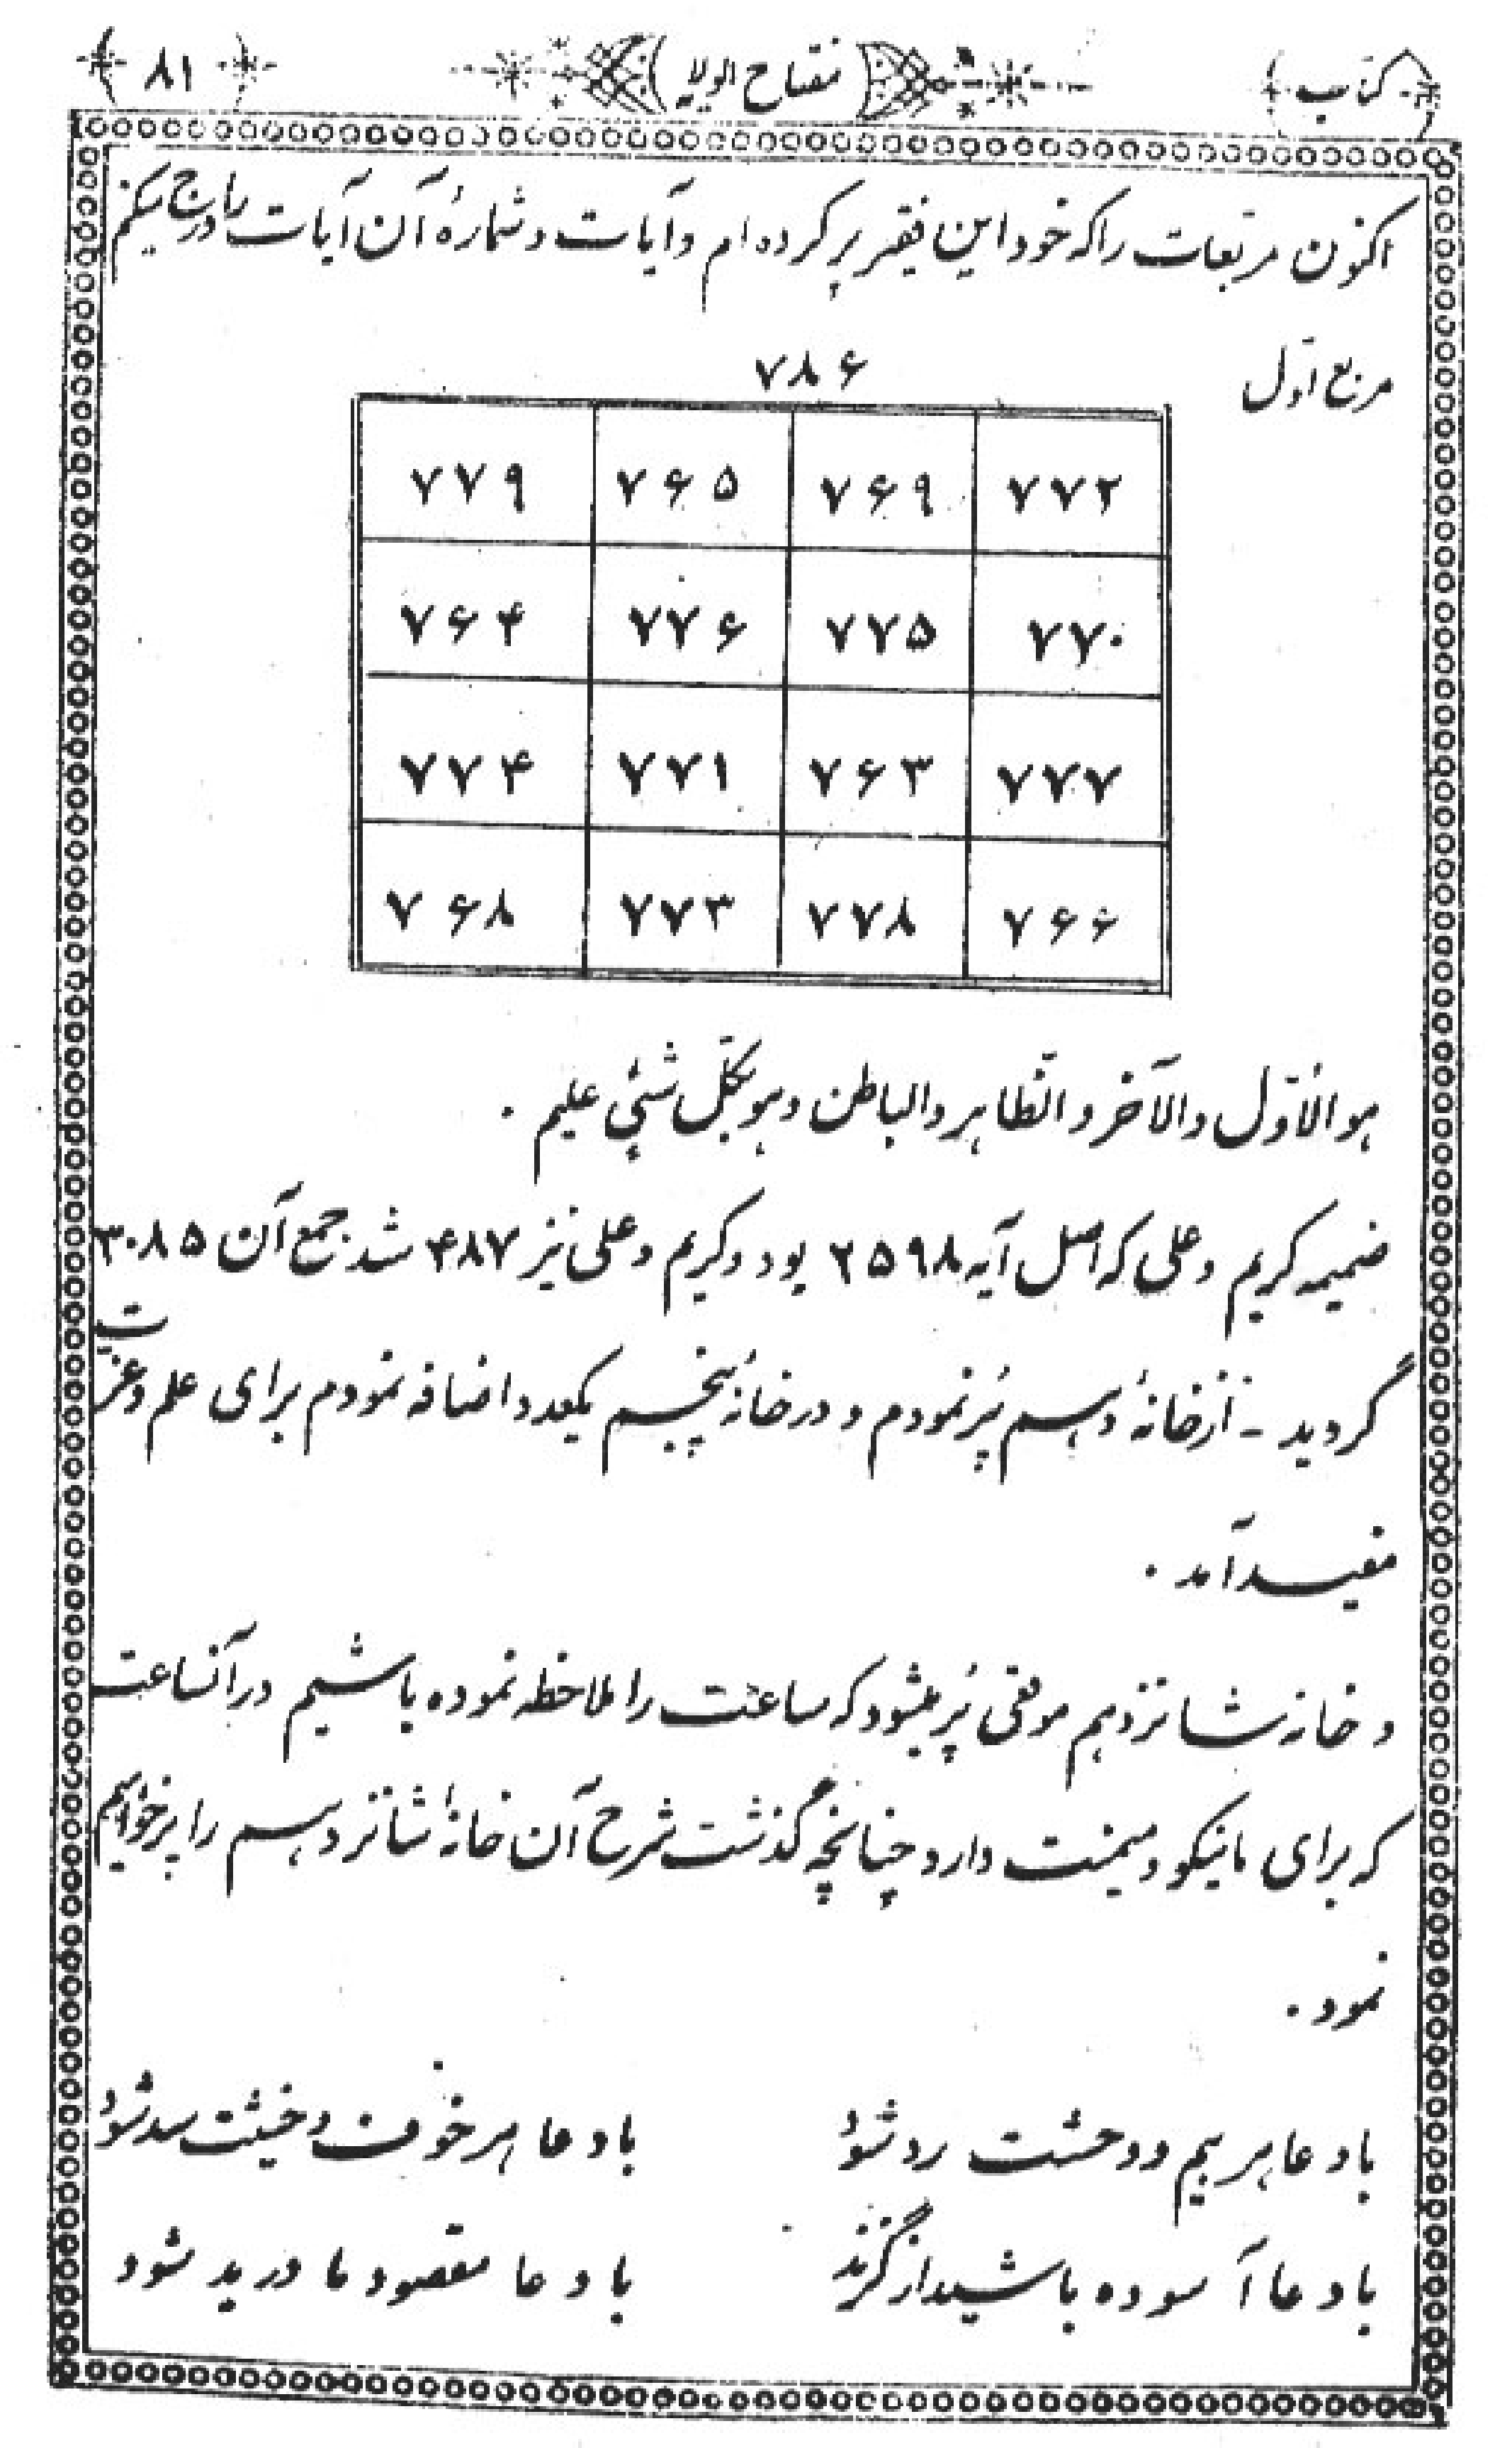 کتاب مفتاح الولایه ۸۱
اکنون مربعات را که خود این فقیر پر کرده ام و آیات و شمارهٔ آن آیات را درج میکنم
مربع اوّل
۷۸۶
۷۷۹ ۷۶۵ ۷۶۹ ۷۷۲
۷۶۴ ۷۷۶ ۷۷۵ ۷۷۰
۷۷۴ ۷۷۱ ۷۶۳ ۷۷۷
۷۶۸ ۷۷۳ ۷۷۸ ۷۶۶
هو الأوّل والآخر و الظّاهر و الباطن و هو بکلّ شئی علیم .
ضمیمه کریم و علی که اصل آیه ۲۵۹۸ بود و کریم و علی نیز ۴۸۷ شد جمع آن ۳۰۸۵
گردید - از خانهٔ دهم پُر نمودم و در خانهٔ پنجم یکعدد اضافه نمودم برای علم و عزّت
مفید آمد .
و خانه شانزدهم موقعی پُر میشود که ساعت را ملاحظه نموده باشیم در آنساعت
که برای ما نیکو و میمنت دارد چنانچه گذشت شرح آن خانهٔ شانزدهم را پر خواهیم
نمود .
با دعا هر بیم و وحشت رد شود با دعا هر خوف و خیثت سد شود
با دعا آسوده باشید از گزند با دعا مقصود ما در ید شود